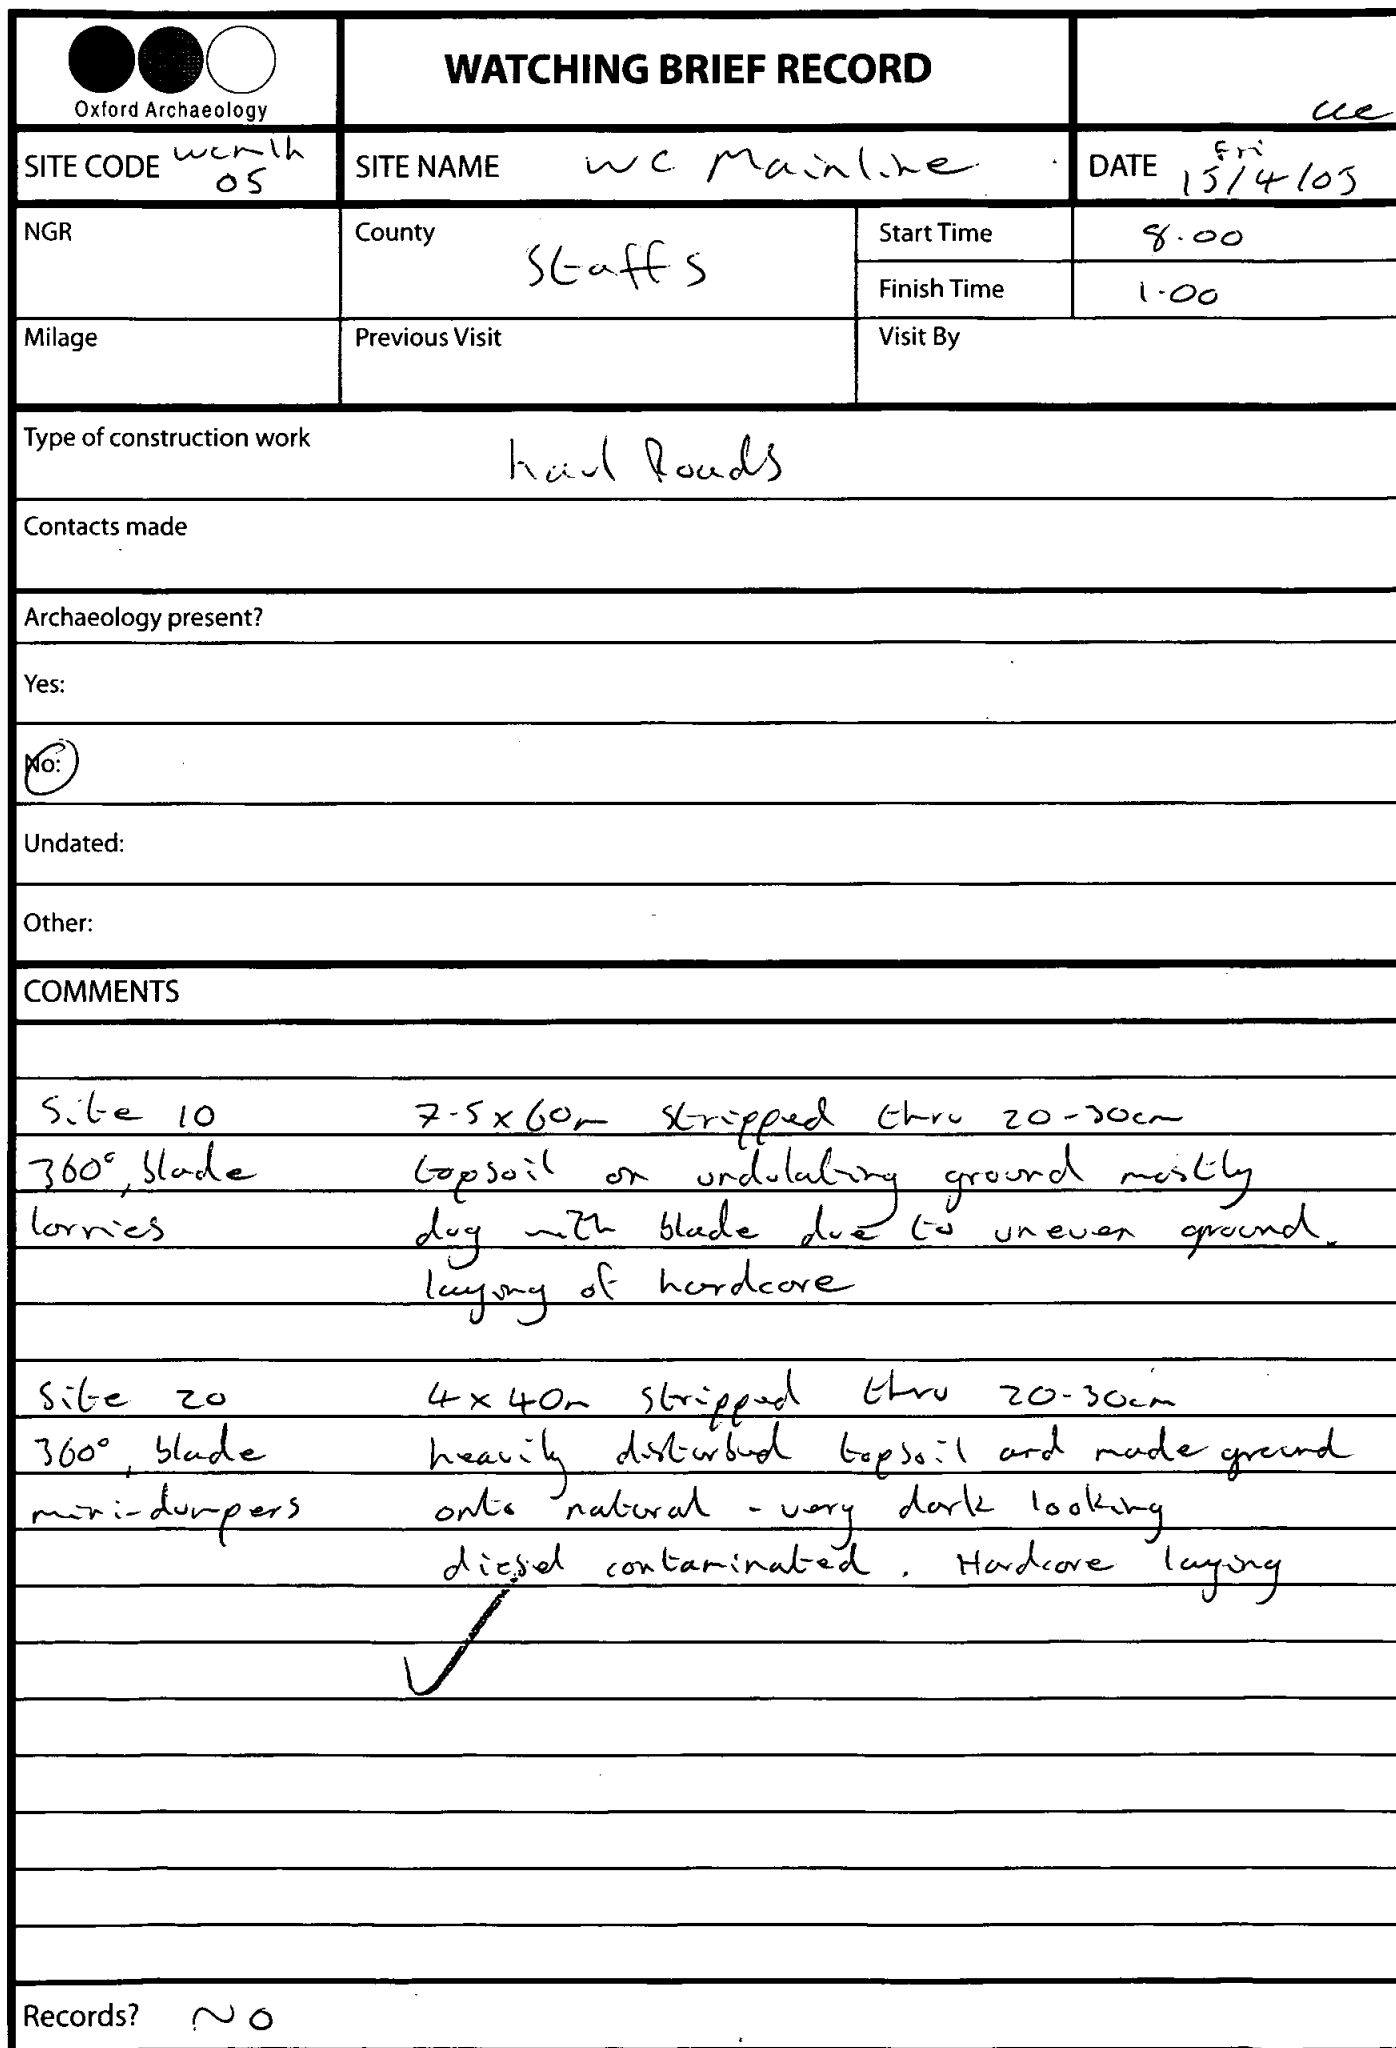 Oxford Archaeology
WATCHING BRIEF RECORD
SITE CODE
05
SITE NAME WC Mainline
DATE Fri
15/4/05
NGR
County
Staffs
Start Time 8.00
Finish Time 1.00
Milage
Previous Visit
Visit By
Type of construction work
haul Roads
Contacts made
Archaeology present?
Yes:
No:
Undated:
Other:
COMMENTS
Site 10 7-5x60m stripped thru 20-30cm
360°, blade topsoil on undulating ground mostly
lorries dug with blade due to uneven ground.
laying of hardcore
Site 20 4x40m stripped thru 20-30cm
360°, blade heavily disturbed topsoil and made ground
mini-dumpers onto natural - very dark looking
diesel contaminated. Hardcore laying
Records? NO